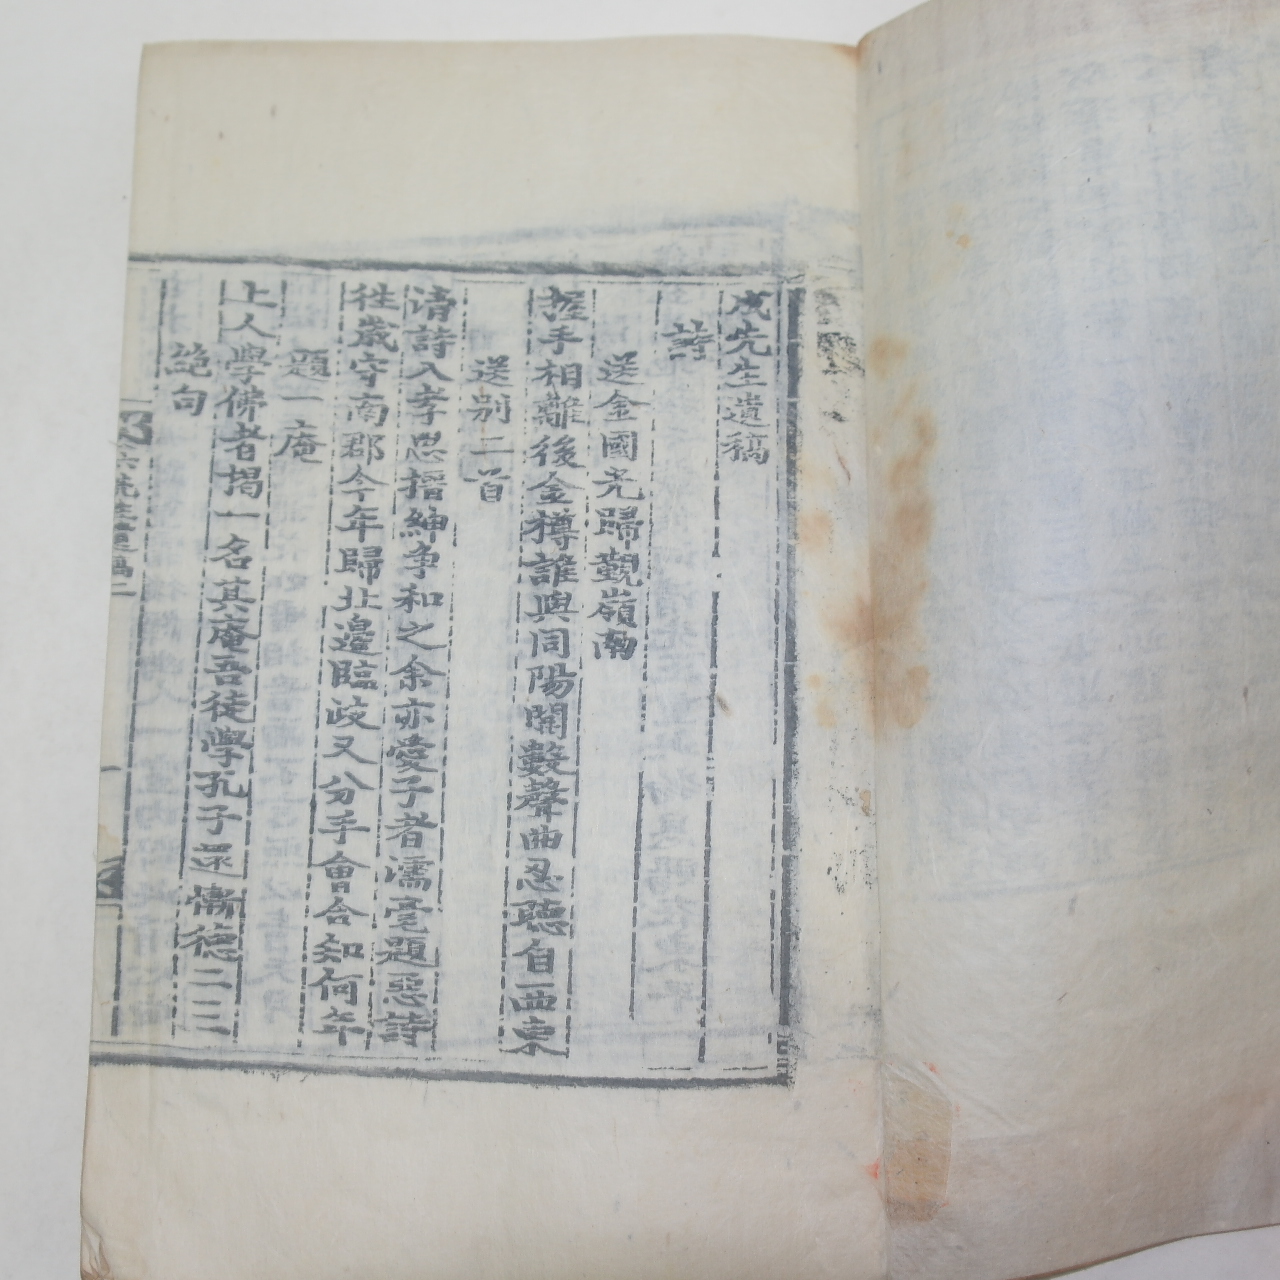 成先生遺稿
詩
送金國光歸覲嶺南
握手相離後金樽誰與同陽關數聲曲忍聽自西東
送別二首
清詩入孝思搢紳爭和之余亦愛子者濡毫題惡詩
往歲守南郡今年歸北邊臨歧又分手會合知何年
題一庵
上人學佛者揭一名其庵吾徒學孔子還慚德二三
絶句
六先生遺稿二
一